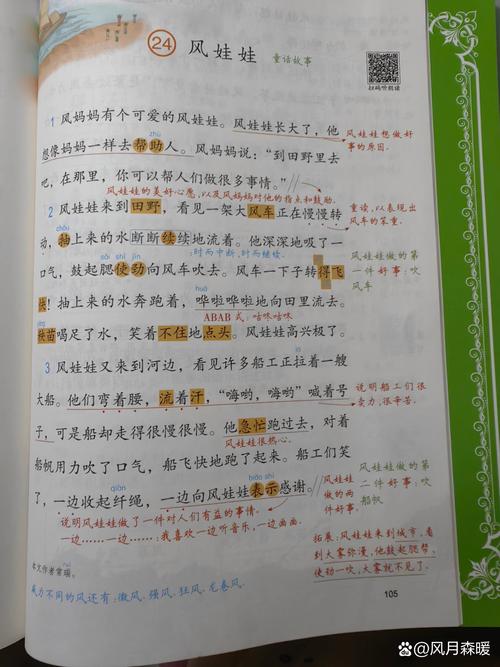 24 风娃娃 童话故事
扫码听朗读
1 风妈妈有个可爱的风娃娃。风娃娃长大了，他
风娃娃想做好
事的原因。
zhù
想像妈妈一样去帮助人。风妈妈说：“到田野里去
吧，在那里，你可以帮人们做很多事情。”
风娃娃的美好心愿，以及风妈妈对他的指点和鼓励。
2 风娃娃来到田野，看见一架大风车正在慢慢转
重读，以表现出
风车的笨重。
动，抽上来的水断断续续地流着。他深深地吸了一
时而中断，时而继续。
shǐ jìn
口气，鼓起腮使劲向风车吹去。风车一下子转得飞
风娃娃做的
第一件好事：吹
风车
huā
快！抽上来的水奔跑着，哗啦哗啦地向田里流去。
ABAB式：咕咪咕咪
yāng
秧苗喝足了水，笑着不住地点头。风娃娃高兴极了。
3 风娃娃又来到河边，看见许多船工正拉着一艘
大船。他们弯着腰，流着汗，“嗨哟，嗨哟”喊着号
说明船工们很
卖力，很辛苦。
子，可是船却走得很慢很慢。他急忙跑过去，对着
风娃娃很热心。
船帆用力吹了口气，船飞快地跑了起来。船工们笑
风娃娃
做的两
件好事。
风娃娃做的第
二件好事：吹
船帆
qiàn
biǎo shì
了，一边收起纤绳，一边向风娃娃表示感谢。
说明风娃娃做了一件对人们有益的事情。
一边……一边……：我喜欢一边听音乐，一边画画。
拓展：风娃娃来到城市，看
到大家弥漫，他鼓起腮帮，
使劲一吹，大家就不见了。
本文作者常瑞。
威力不同的风还有：微风、强风、狂风、龙卷风
105
@风月森暖